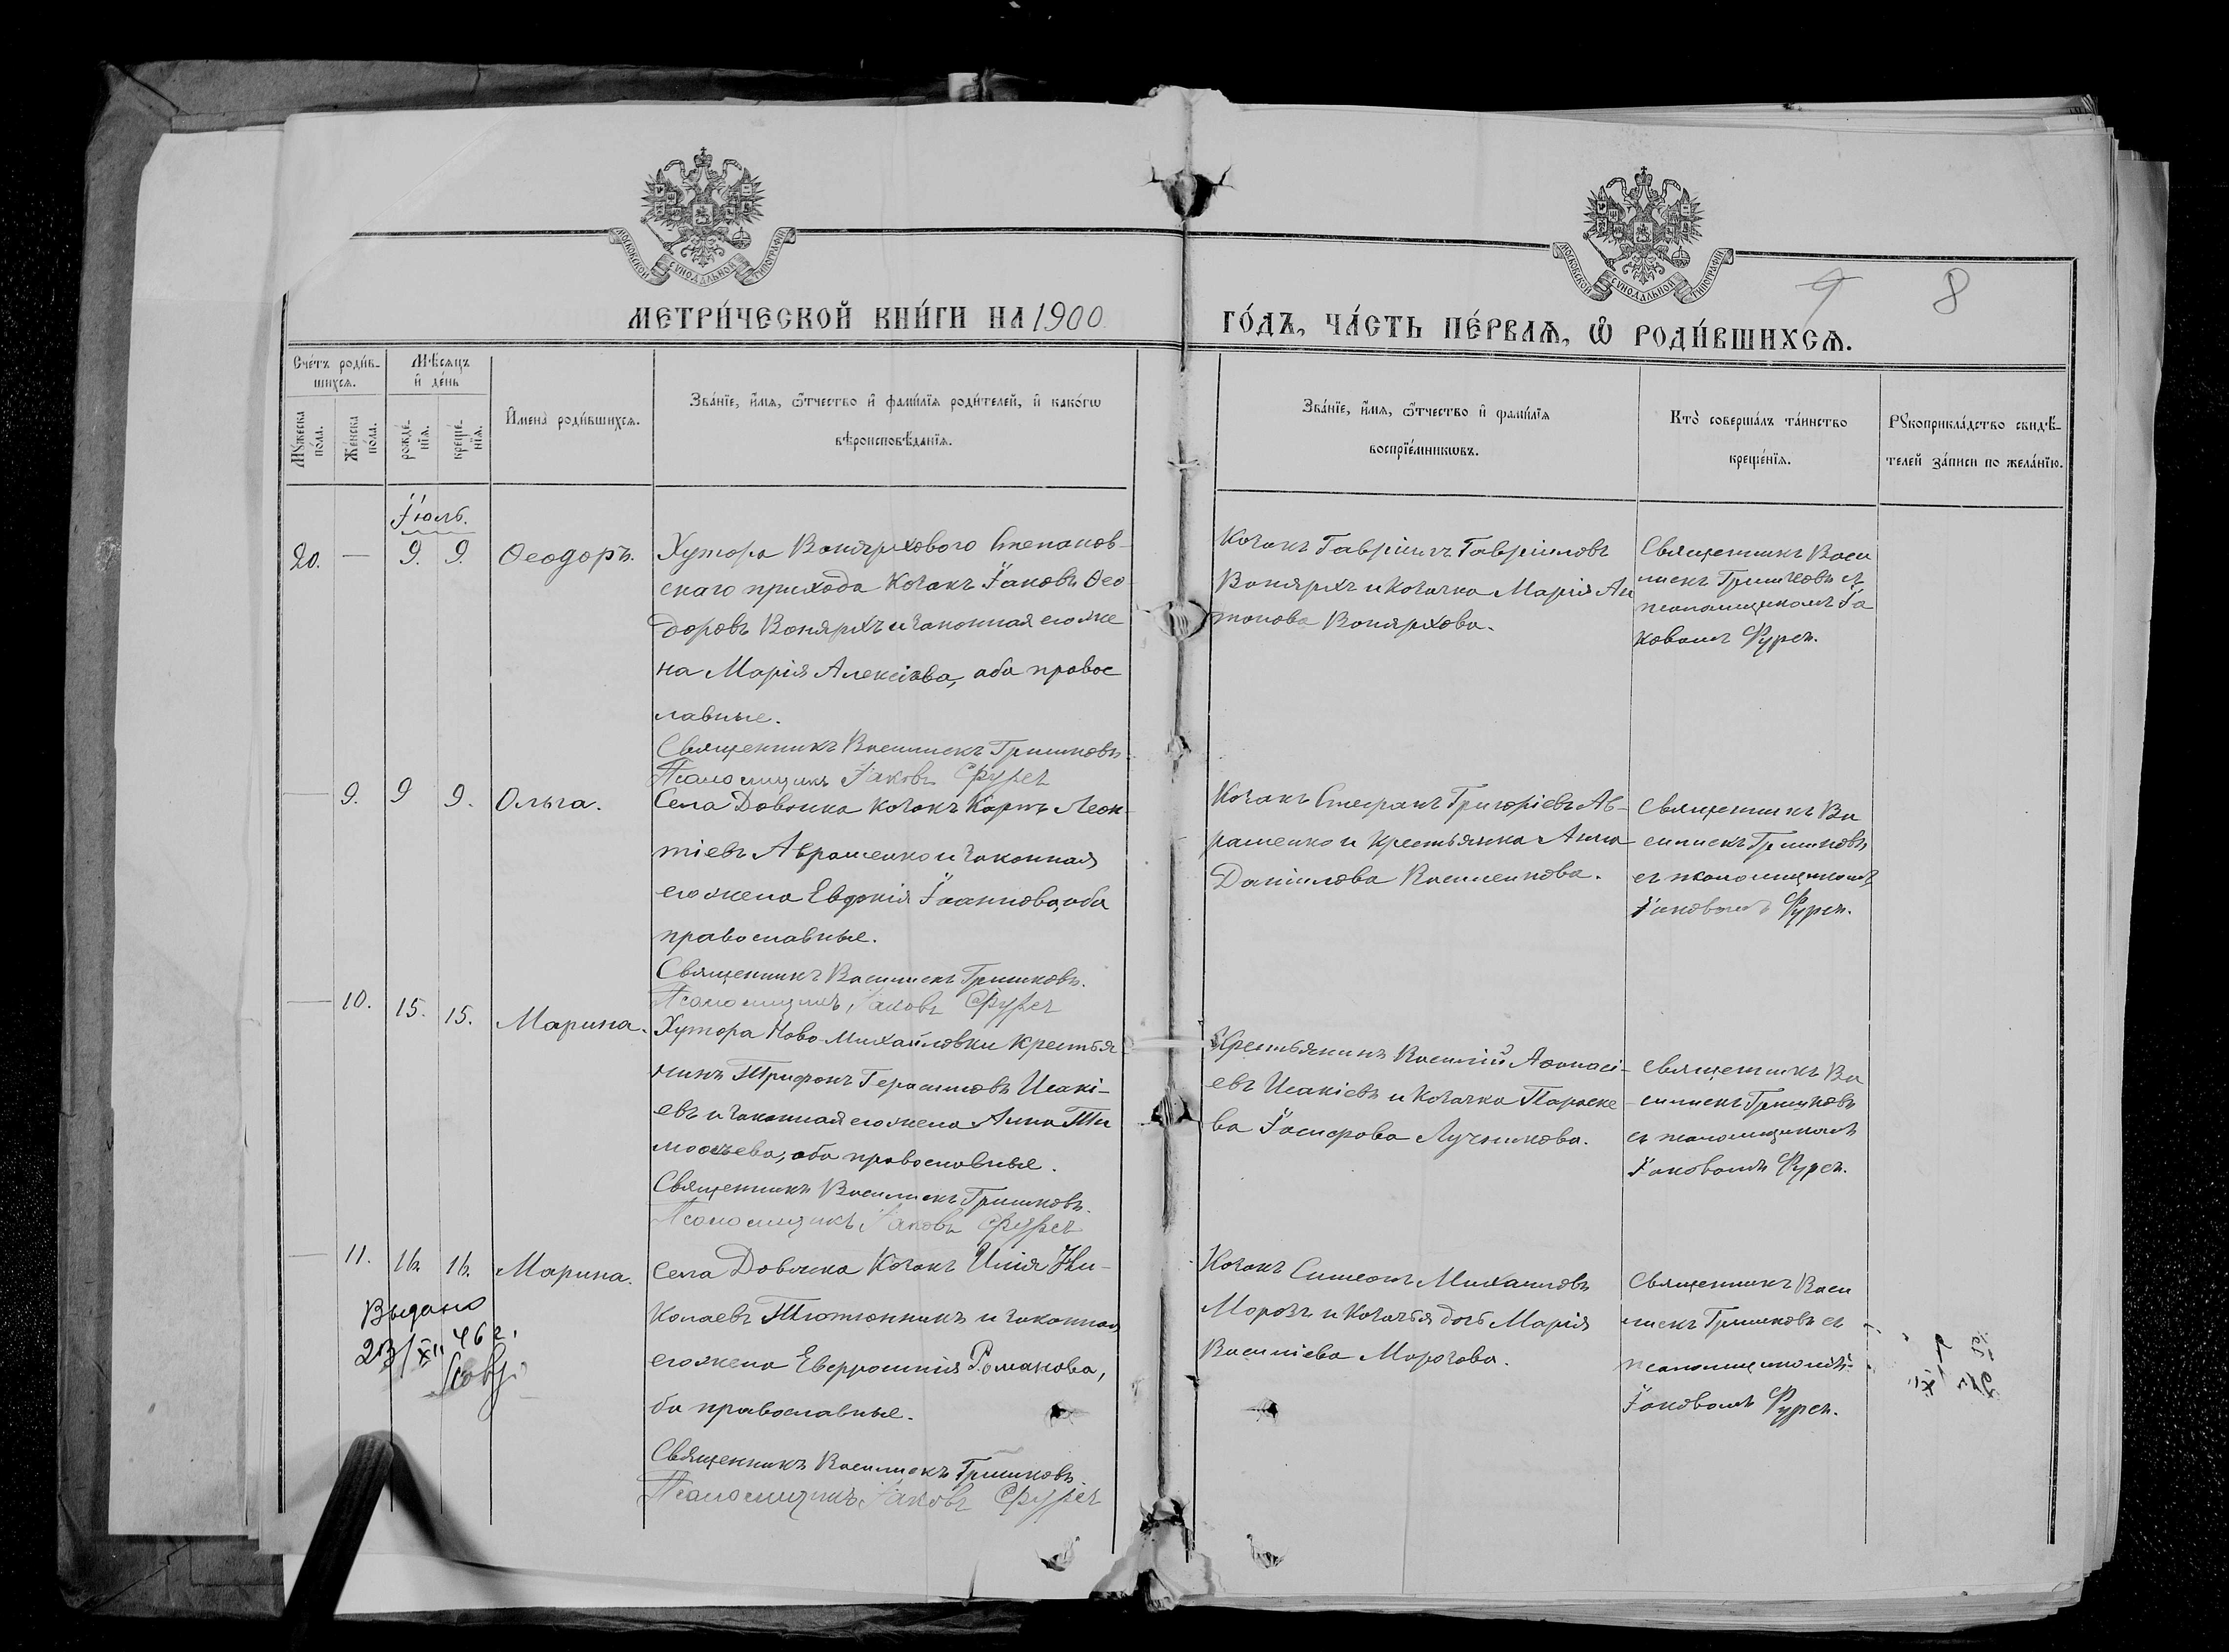 МОСКОВСКОЙ СѴНОДАЛЬНОЙ ТИПОГРАФІИ
МОСКОВСКОЙ СѴНОДАЛЬНОЙ ТИПОГРАФІИ
9 8
МЕТРИ́ЧЕСКОЙ КНИ́ГИ НА 1900
ГО́ДЪ, ЧА́СТЬ ПЕ́РВАѦ, Ѽ РОДИ́ВШИХСѦ.
Сче́тъ роди́в-
шихсѧ.
Мꙋ́жеска
по́ла.
Же́нска
по́ла.
Мѣ́сяцъ
и҆ де́нь
рожде́-
нїѧ.
креще́-
нїѧ.
И҆мена̀ роди́вшихсѧ.
Зва́нїе, и҆́мѧ, ѻ҆́тчество и҆ фами́лїѧ роди́телей, и҆ како́гѡ
вѣроисповѣ́данїѧ.
Зва́нїе, и҆́мѧ, ѻ҆́тчество и҆ фами́лїѧ
воспрїе́мникѡвъ.
Кто̀ соверша́лъ та́инство
креще́нїѧ.
Рꙋкоприкла́дство свидѣ́-
телей за́писи по жела́нїю.
Іюль.
20. — 9. 9. Ѳеодоръ.
Хутора Вонярхового Степанов-
скаго прихода козакъ Іаковъ Ѳео-
доровъ Вонярхъ и законная его же
на Марія Алексіева, оба правос
лавные.
Священникъ Василискъ Гришковъ.
Псаломщикъ Іаковъ Фурсъ
Козакъ Гавріилъ Гавріиловъ
Вонярхъ и козачка Марія Ан
тонова Вонярхова.
Священникъ Васи
лискъ Гришковъ съ
псаломщикомъ Іа
ковомъ Фурсъ.
— 9. 9 9. Ольга.
Села Довжика козакъ Карпъ Леон-
тіевъ Авраменко и законная
его жена Евдокія Іоаннова, оба
православные.
Священникъ Василискъ Гришковъ.
Псаломщикъ Іаковъ Фурсъ
Козакъ Стефанъ Григоріевъ Ав-
раменко и крестьянка Анна
Даніилова Василенкова.
Священникъ Ва
силискъ Гришковъ
съ псаломщикомъ
Іаковомъ Фурсъ.
— 10. 15. 15. Марина.
Хутора Ново-Михайловки крестья
нинъ Трифонъ Герасимовъ Исакі-
евъ и законная его жена Анна Ти
моѳеева, оба православные.
Священникъ Василискъ Гришковъ.
Псаломщикъ Іаковъ Фурсъ
Крестьянинъ Василій Аѳанасі-
евъ Исакіевъ и козачка Параске
ва Іосифова Лучникова.
Священникъ Ва
силискъ Гришковъ
съ псаломщикомъ
Іаковомъ Фурсъ.
— 11. 16. 16. Марина.
Села Довжика козакъ Илія Ни-
колаевъ Тютюнникъ и законная
его жена Евфросинія Романова,
ба православные.
Священникъ Василискъ Гришковъ.
Псаломщикъ Іаковъ Фурсъ
Козакъ Симеонъ Михаиловъ
Морозъ и козачья дочь Марія
Василіева Морозова.
Священникъ Васи
лискъ Гришковъ съ
псаломщикомъ
Іаковомъ Фурсъ.
Выдано
23/XII 46 г.